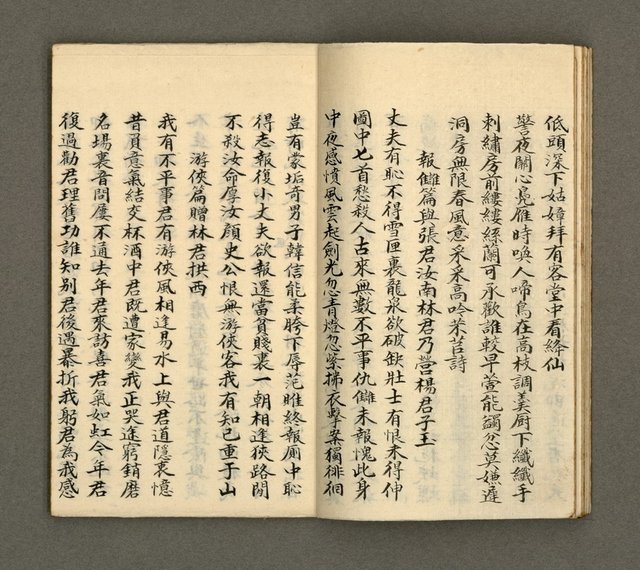 低頭深下姑嫜拜有客堂中看絳仙
警夜關心鳧雁時喚人啼鳥在高枝調羹厨下纖纖手
刺繡房前縷縷絲蘭可承歡誰較早萱能蠲忿莫嫌遲
洞房無限春風意采采高吟芣苢詩
報讎篇與張君汝南林君乃營楊君子玉
丈夫有恥不得雪匣裏龍泉欲破缺壯士有恨未得伸
圖中匕首愁殺人古來無數不平事仇讎未報愧此身
中夜感憤風雲起劍光忽青燈忽紫拂衣擊案獨徘徊
豈有蒙垢奇男子韓信能柔胯下辱范雎終報廁中恥
得志報復小丈夫欲報還當貧賤裏一朝相逢狹路間
不殺汝命厚汝顏史公恨無游俠客我有知己重于山
游俠篇贈林君拱西
我有不平事君有游俠風相逢易水上與君道隱衷憶
昔員意氣結交杯酒中君既遭家變我正哭途窮銷磨
名場裏音問屢不通去年君來訪喜君氣如虹今年君
復過勸君理舊功誰知別君後遇暴折我躬君為我感